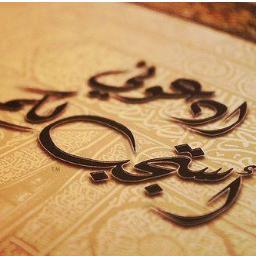 ادعوني
أستجب لكم